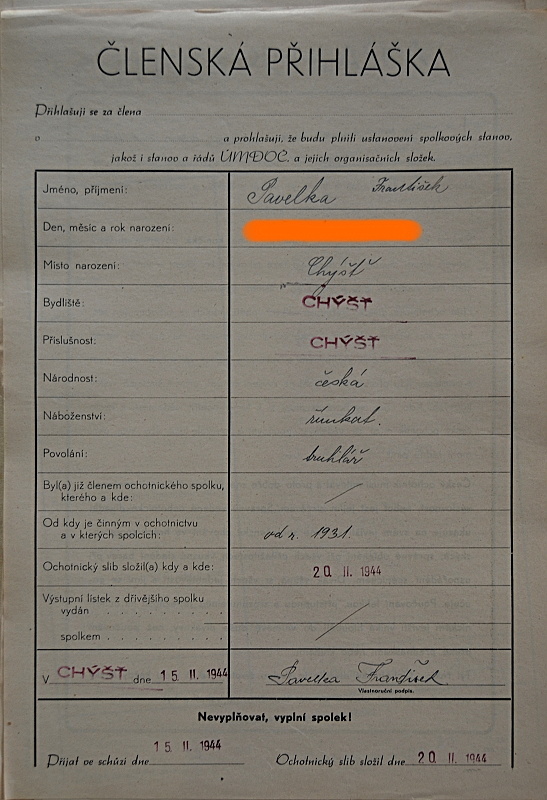 ČLENSKÁ PŘIHLÁŠKA
Přihlašuji se za člena
o a prohlašuji, že budu plniti ustanovení spolkových stanov,
jakož i stanov a řádů ÚMDOČ. a jejich organisačních složek.
Jméno, příjmení: Pavelka František
Den, měsíc a rok narození:
Místo narození: Chýšť
Bydliště: CHÝŠŤ
Příslušnost: CHÝŠŤ
Národnost: česká
Náboženství: římkat.
Povolání: truhlář
Byl(a) již členem ochotnického spolku,
kterého a kde: /
Od kdy je činným v ochotnictvu
a v kterých spolcích: od r. 1931.
Ochotnický slib složil(a) kdy a kde: 20 II. 1944
Výstupní lístek z dřívějšího spolku
vydán . . . . . . . . . . .
spolkem . . . . . . . . . . /
V CHÝŠŤ dne 15 II. 1944 Pavelka František
Vlastnoruční podpis.
Nevyplňovat, vyplní spolek!
Přijat ve schůzi dne 15 II. 1944 Ochotnický slib složil dne 20 II. 1944